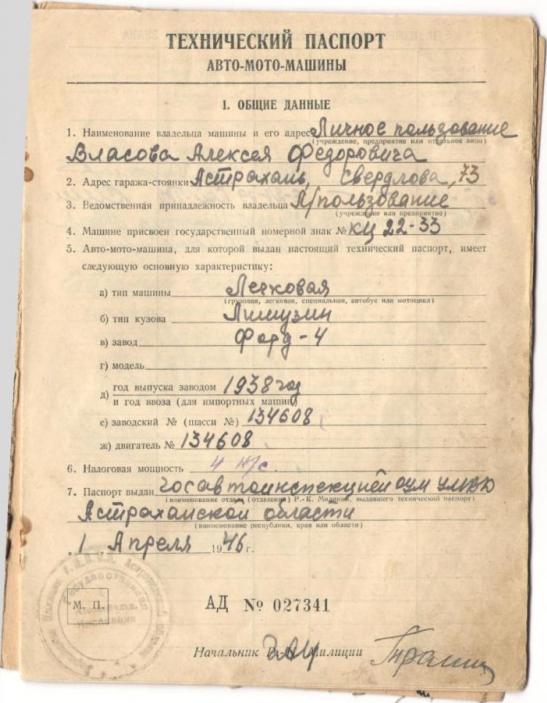 ТЕХНИЧЕСКИЙ ПАСПОРТ
АВТО-МОТО-МАШИНЫ
1. ОБЩИЕ ДАННЫЕ
1. Наименование владельца машины и его адрес Личное пользование
(учреждение, предприятие или отдельное лицо)
Власова Алексея Федоровича
2. Адрес гаража-стоянки Астрахань, Свердлова, 73
3. Ведомственная принадлежность владельца Л/пользование
(учреждение или предприятие)
4. Машине присвоен государственный номерной знак № КЦ 22-33
5. Авто-мото-машина, для которой выдан настоящий технический паспорт, имеет
следующую основную характеристику:
а) тип машины Легковая
(грузовая, легковая, специальная, автобус или мотоцикл)
б) тип кузова Лимузин
в) завод Форд-4
г) модель
д) год выпуска заводом 1938 год
и год ввоза (для импортных машин)
е) заводский № (шасси №) 134608
ж) двигатель № 134608
6. Налоговая мощность 4
7. Паспорт выдан госавтоинспекцией
(наименование отдела (отделения) Р.-К. Милиции, выдавшего технический паспорт)
Астраханской области
(наименование республики, края или области)
„1 Апреля 1946 г.
М. П.
АД № 027341
Начальник Милиции